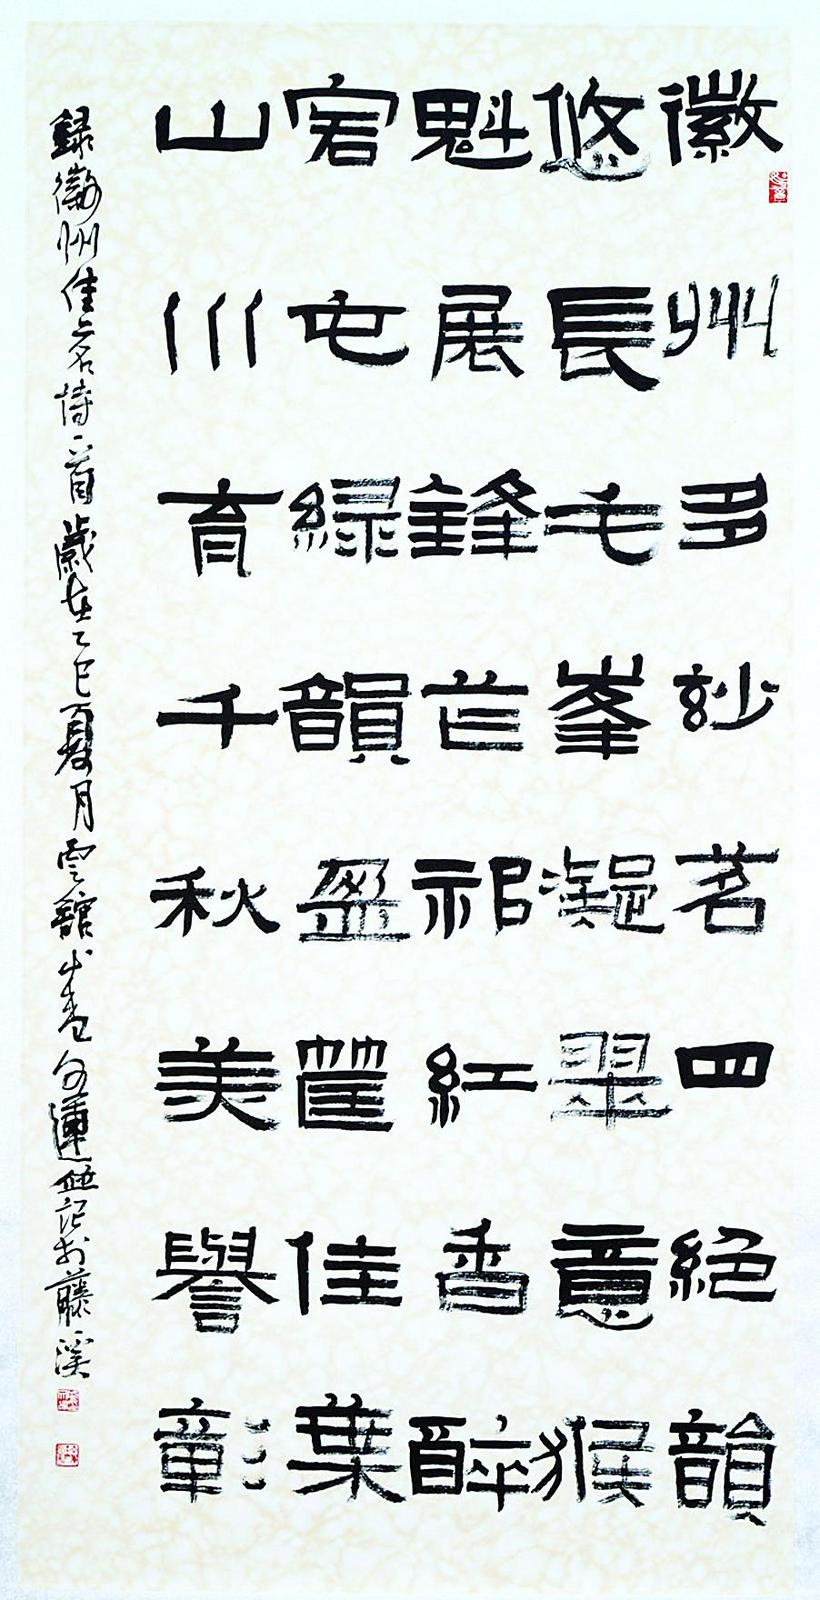 徽州多玅茗四絕韻
悠長毛峯凝翠意猴
魁展鋒芒祁紅香醉
客屯綠韻盈筐佳葉
山川育千秋美譽彰
錄徽州佳茗詩一首歲在乙巳夏月雲館並記於藤溪